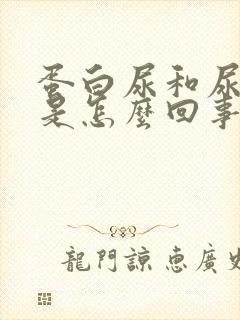 蛋白尿和尿
是怎麼回事
龍門諒惠廣